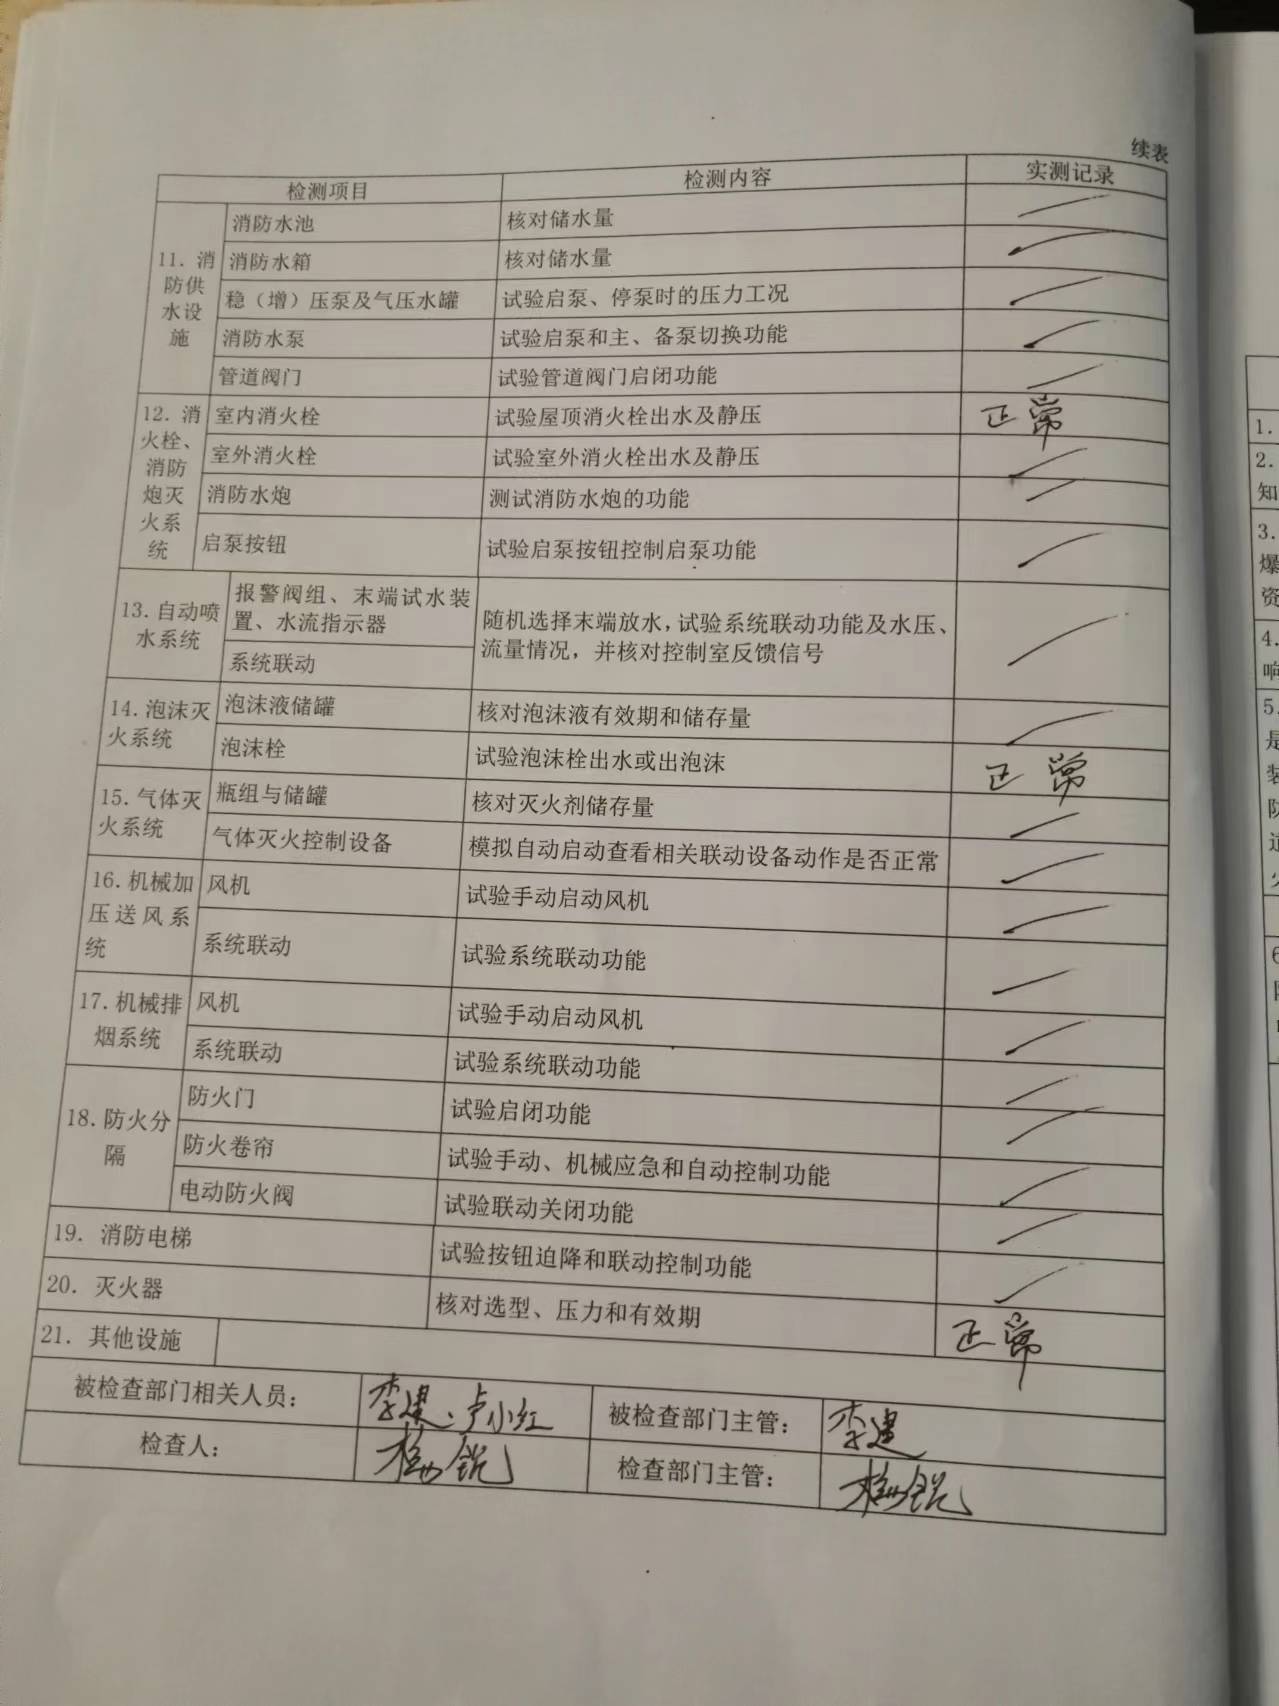 续表
检测项目 检测内容 实测记录
11. 消防供水设施 消防水池 核对储水量
消防水箱 核对储水量
稳（增）压泵及气压水罐 试验启泵、停泵时的压力工况
消防水泵 试验启泵和主、备泵切换功能
管道阀门 试验管道阀门启闭功能
12. 消火栓、消防炮灭火系统 室内消火栓 试验屋顶消火栓出水及静压 正常
室外消火栓 试验室外消火栓出水及静压
消防水炮 测试消防水炮的功能
启泵按钮 试验启泵按钮控制启泵功能
13. 自动喷水系统 报警阀组、末端试水装置、水流指示器 随机选择末端放水，试验系统联动功能及水压、流量情况，并核对控制室反馈信号
系统联动
14. 泡沫灭火系统 泡沫液储罐 核对泡沫液有效期和储存量
泡沫栓 试验泡沫栓出水或出泡沫 正常
15. 气体灭火系统 瓶组与储罐 核对灭火剂储存量
气体灭火控制设备 模拟自动启动查看相关联动设备动作是否正常
16. 机械加压送风系统 风机 试验手动启动风机
系统联动 试验系统联动功能
17. 机械排烟系统 风机 试验手动启动风机
系统联动 试验系统联动功能
18. 防火分隔 防火门 试验启闭功能
防火卷帘 试验手动、机械应急和自动控制功能
电动防火阀 试验联动关闭功能
19. 消防电梯 试验按钮迫降和联动控制功能
20. 灭火器 核对选型、压力和有效期 正常
21. 其他设施
被检查部门相关人员： 李建、卢小红 被检查部门主管： 李建
检查人： 检查部门主管：
1.
2.
知
3.
爆
资
4.
响
5.
是
装
防